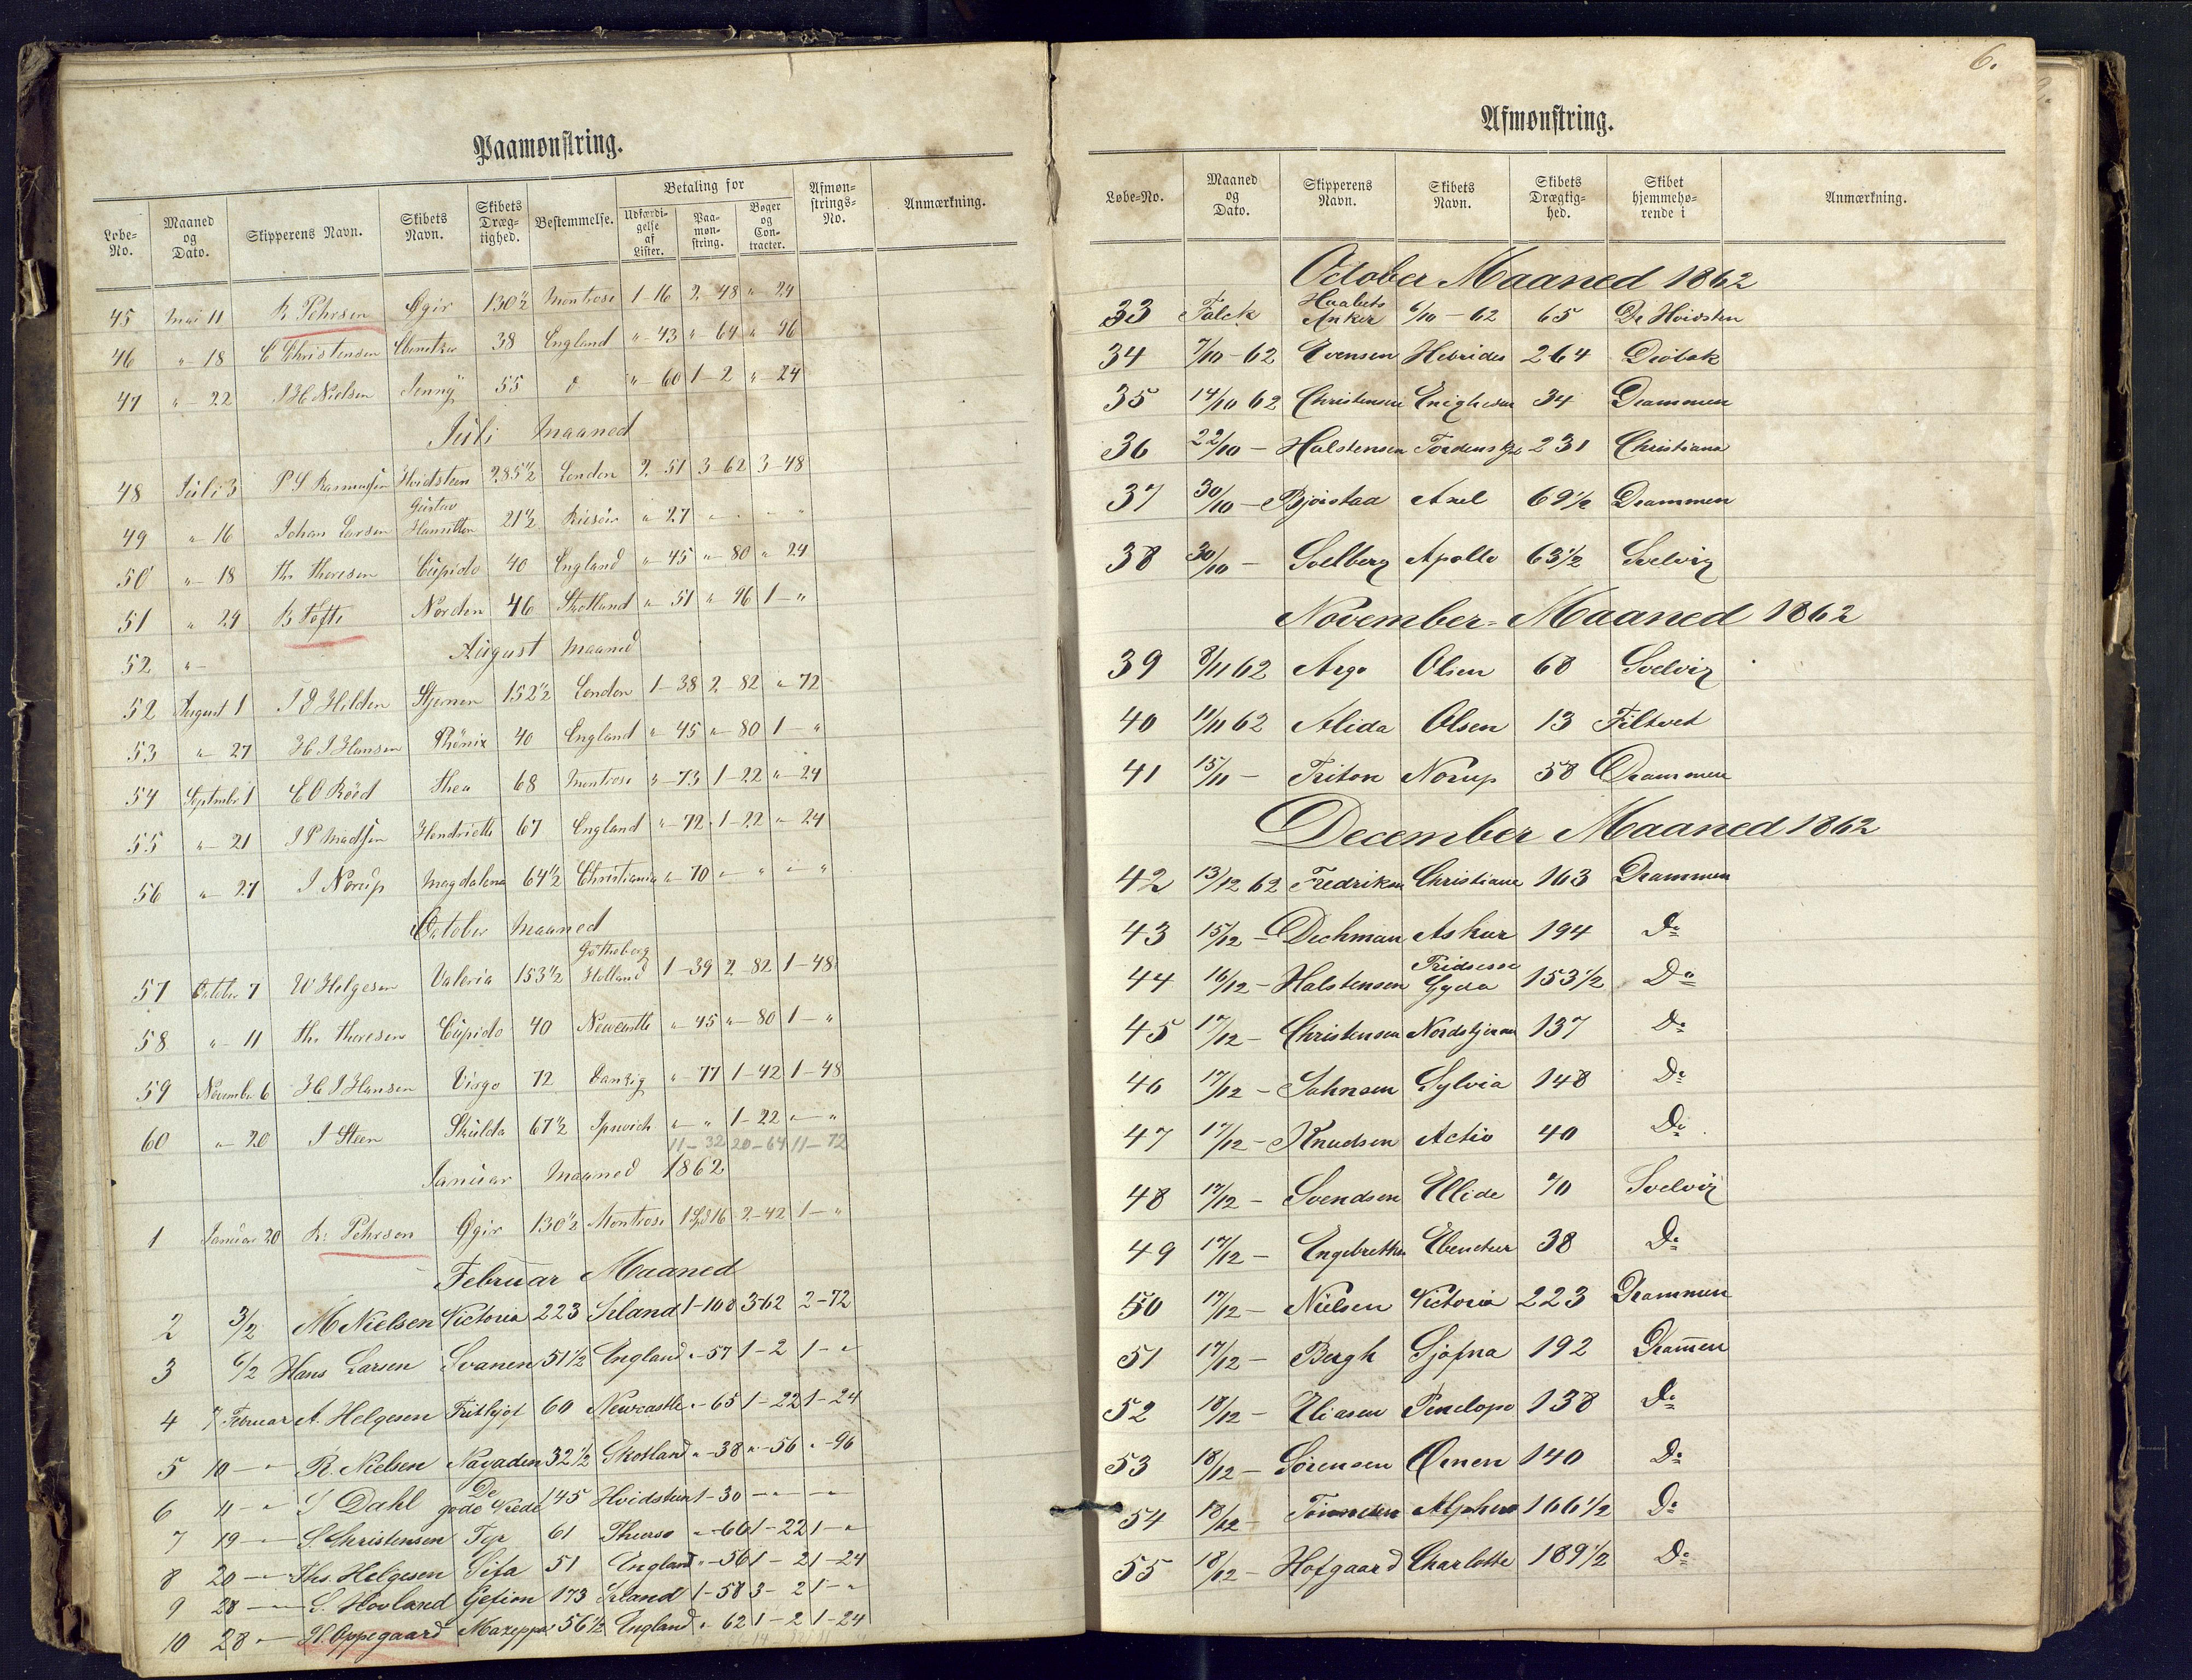 Paamønstring.
Løbe-No. Maaned og Dato. Skipperens Navn. Skibets Navn. Skibets Drægtighed. Bestemmelse. Betaling for Udfærdigelse af Lister. Paamønstring. Bøger og Contracter. Afmønstrings-No. Anmærkning.
45 Mai 11 R Pehrsen Ögir 130 1/2 Montrose 1-16 2-48 "-24
46 "-18 C Christensen 38 England "-43 "-64 "-96
47 "-22 J H Nielsen Jenny 55 d "-60 1-2 "-24
Juli Maaned
48 Juli 3 P S Rasmussen Hvidsteen 285 1/2 London 2-51 3-62 3-48
49 "-16 Johan Larsen Gustav Hamilton 21 1/2 Riisöer "-27 "-" "
50 "-18 Th. Thoresen Cupido 40 England "-45 "-80 "-24
51 "-29 B Tofte Norden 46 Skotland "-51 "-96 1-"
52 "-
August Maaned
52 August 1 J E Holden Stjernen 152 1/2 London 1-38 2-82 "-72
53 "-27 H J Hansen Phönix 40 England "-45 "-80 1-"
54 Septmbr 1 E O Röed Thea 68 Montrose "-73 1-22 "-24
55 "-21 J P Madsen Hendriette 67 England "-72 1-22 "-24
56 "-27 J Norup Magdalena 64 1/2 Christiania "-70 "-" "-"
October Maaned
57 October 7 W Helgesen Valeria 153 1/2 Götheborg Holland 1-39 2-82 1-48
58 "-11 Th. Thoresen Cupido 40 Newcastle "-45 "-80 1-"
59 Novembr 6 H J Hansen Virgo 72 Danzig "-77 1-42 1-48
60 "-20 J Steen Skulda 67 1/2 Ipswich "-" 1-22 "-"
11-32 20-64 11-72
Januar Maaned 1862
1 Januar 20 R: Pehrson Ögir 130 1/2 Montrose 1 Spd 16 2-42 1-"
Februar Maaned
2 3/2 M Nielsen Victoria 223 Irland 1-108 3-62 2-72
3 6/2 Hans Larsen Svanen 51 1/2 England "-57 1-2 1-"
4 7 Februar A. Helgesen Frithjof 60 Newcastle "-65 1-22 1-24
5 10-" R. Nielsen Nayaden 32 1/2 Skotland "-38 "-56 "-96
6 11-" J Dahl De gode Venner 145 Hvidsteen 1-30 "-" "-"
7 19-" S. Christensen Tyr 61 Thurso "-66 1-22 1-"
8 20-" Ths. Helgesen Sifa 51 England "-56 1-2 1-24
9 28-" S. Hovland Gefion 173 Irland 1-58 3-2 1-"
10 28-" H. Oppegaard Mazeppa 56 1/2 England "-62 1-2 1-24
6.
Afmønstring.
Løbe-No. Maaned og Dato. Skipperens Navn. Skibets Navn. Skibets Drægtighed. Skibet hjemmehørende i Anmærkning.
October Maaned 1862
33 Falck Haabets Anker 6/10-62 65 Hvidsten
34 7/10-62 Evensen Hebrides 264 Dröbak
35 14/10 62 Christensen Enigheden 34 Drammen
36 22/10- Halstensen Tordenskjl 231 Christiana
37 30/10- Bjørstad Axel 69 1/2 Drammen
38 30/10- Solberg Apollo 63 1/2 Svelvig
November Maaned 1862
39 8/11 62 Argo Olsen 68 Svelvig
40 11/11 62 Alida Olsen 13 Filtvet
41 15/11- Triton Norup 58 Drammen
December Maaned 1862
42 13/12 62 Fredriksen Christiane 163 Drammen
43 15/12- Dechman Askur 194 Do
44 16/12- Halstensen Pridsesse Gyda 153 1/2 Do
45 17/12- Christensen Nordstjernen 137 Do
46 17/12- Johnsen Sylvia 148 Do
47 17/12- Knudsen Activ 40 Do
48 17/12- Svendsen Ellide 70 Svelvig
49 17/12- Engebrethsen Ebenetzer 38 Do
50 17/12- Nielsen Victoria 223 Drammen
51 17/12- Bergh Sjöfna 192 Dramen
52 18/12- Eliasen Penelope 138 Do
53 18/12- Sörensen Örnen 140 Do
54 18/12- Tönnesen Alpheus 166 1/2 Do
55 18/12- Hofgaard Charlotte 189 1/2 Do